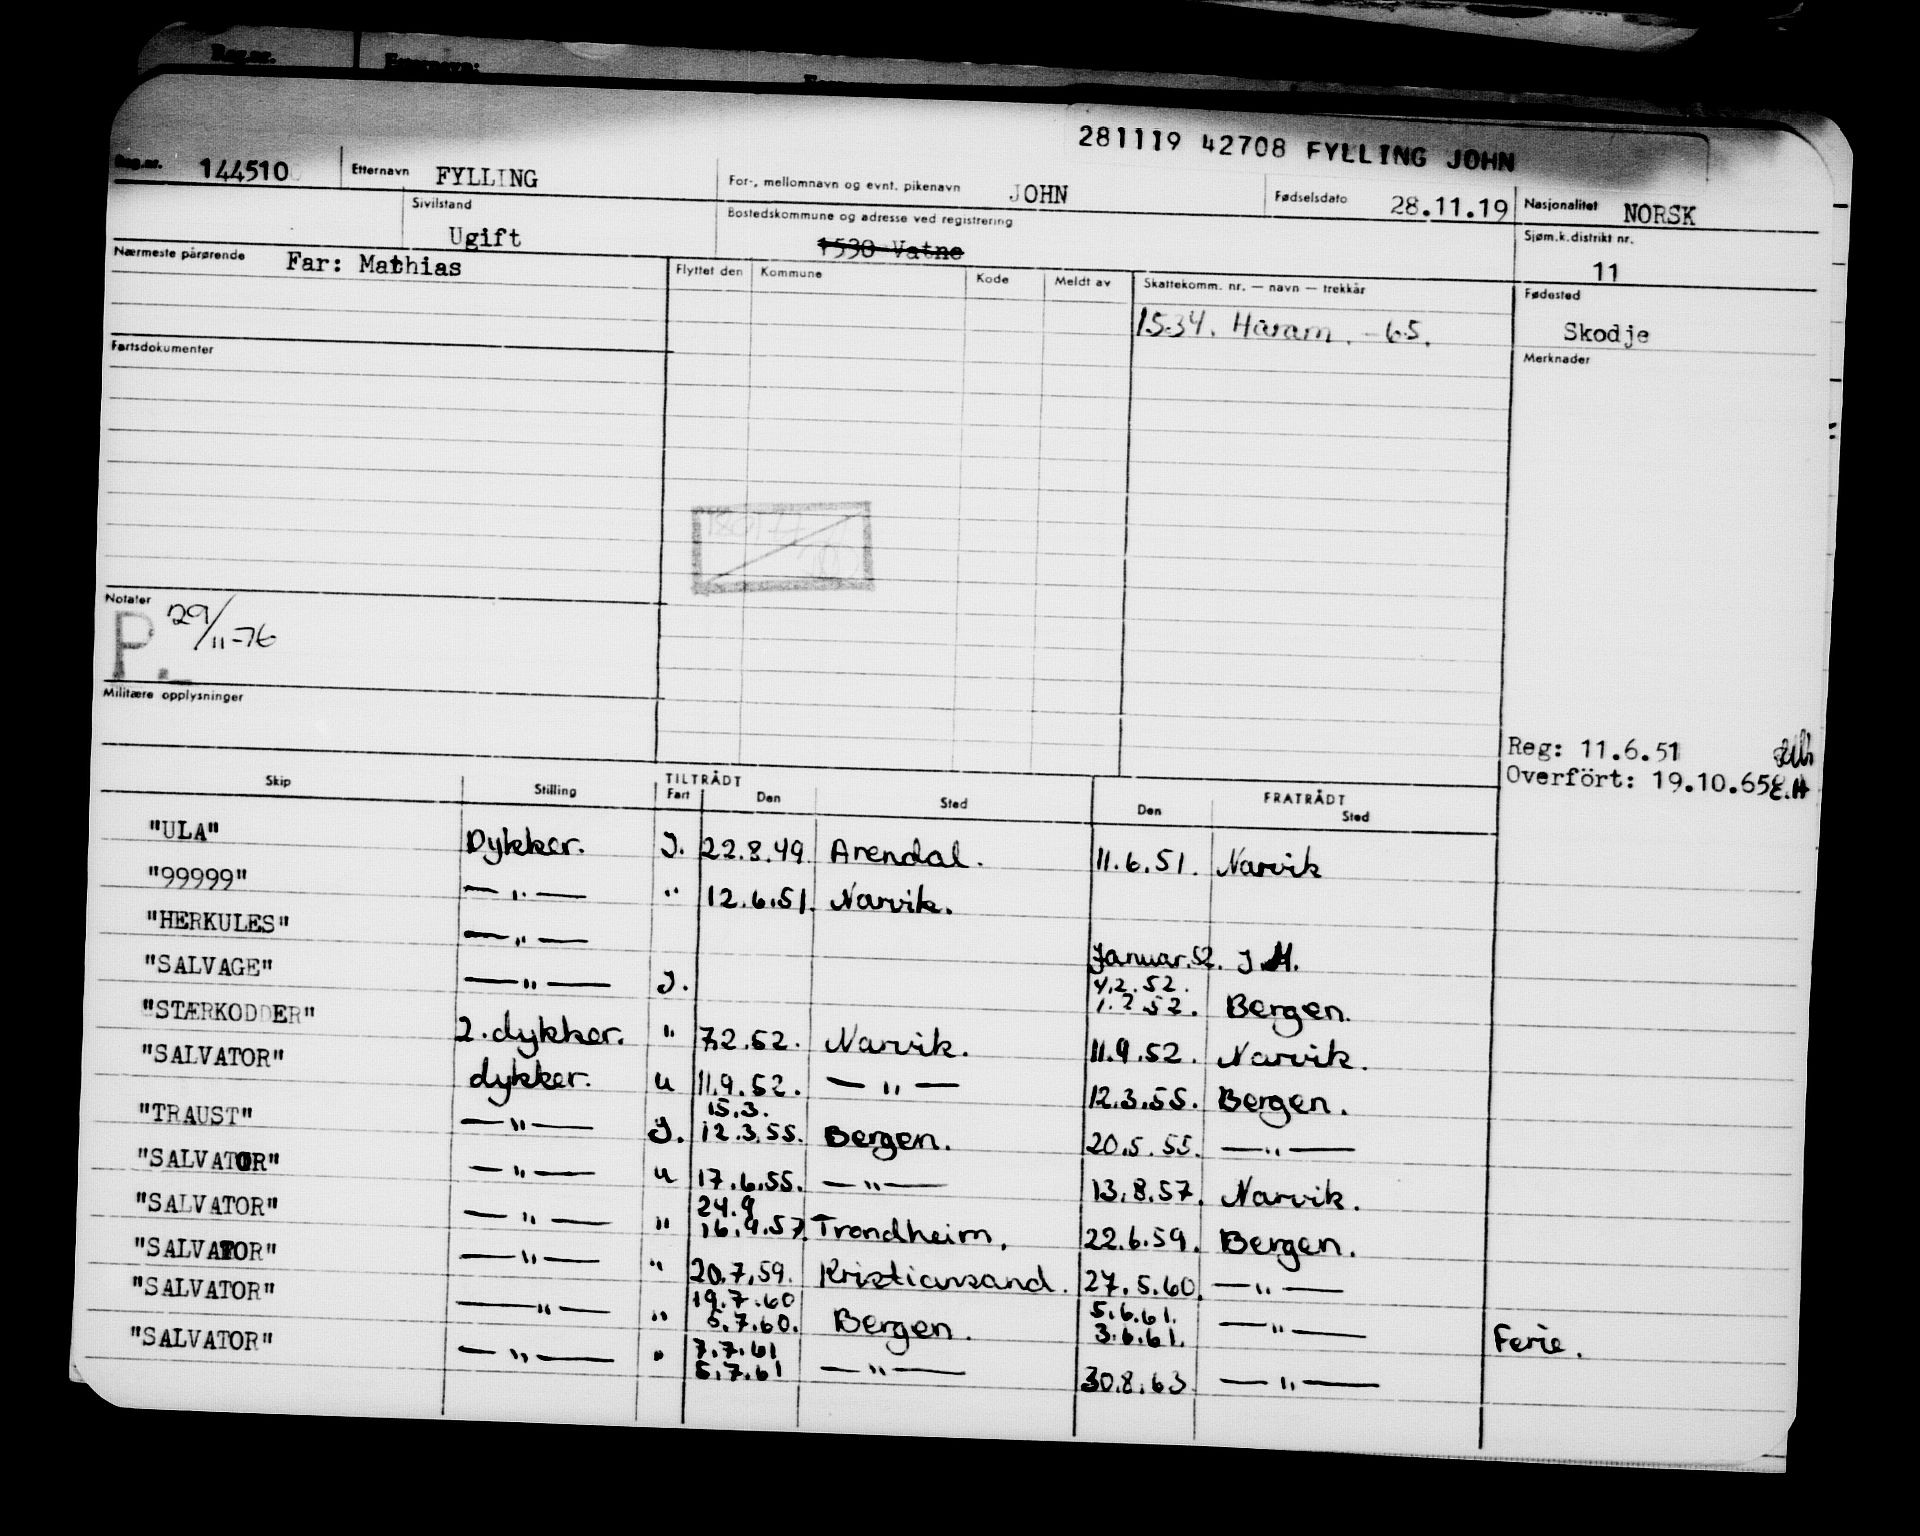 Reg.nr. Etternavn:
281119 42708 FYLLING JOHN
Reg.nr. 144510 Etternavn FYLLING For-, mellomnavn og evnt. pikenavn JOHN Fødselsdato 28.11.19 Nasjonalitet NORSK
Sivilstand Ugift Bostedskommune og adresse ved registrering 1530 Vatne Sjøm.k.distrikt nr. 11
Nærmeste pårørende Far: Mathias Flyttet den Kommune Kode Meldt av Skattekomm. nr. — navn — trekkår Fødested
1534. Haram. -65. Skodje
Fartsdokumenter Merknader
Notater
P. 29/11-76
Militære opplysninger
Reg: 11.6.51
Overfört: 19.10.65 E.H
TILTRÅDT FRATRÅDT
Skip Stilling Fart Den Sted Den Sted
"ULA" Dykker. J. 22.8.49. Arendal. 11.6.51. Narvik
"99999" — " — " 12.6.51. Narvik.
"HERKULES" — " — Januar.52. J.M.
"SALVAGE" — " — J. 4.2.52.
1.2.52. Bergen.
"STÆRKODDER" 2.dykker. " 7.2.52. Narvik. 11.9.52. Narvik.
"SALVATOR" dykker. u 11.9.52. — " — 12.3.55. Bergen.
15.3.
"TRAUST" — " — J. 12.3.55. Bergen. 20.5.55. — " —
"SALVATOR" — " — u 17.6.55. — " — 13.8.57. Narvik.
24.9
"SALVATOR" — " — " 16.9.57. Trondheim. 22.6.59. Bergen.
"SALVATOR" — " — " 20.7.59. Kristiansand. 27.5.60. — " —
19.7.60 5.6.61.
"SALVATOR" — " — " 5.7.60. Bergen. 3.6.61. — " — Ferie.
7.7.61
"SALVATOR" — " — " 5.7.61 — " — 30.8.63. — " —